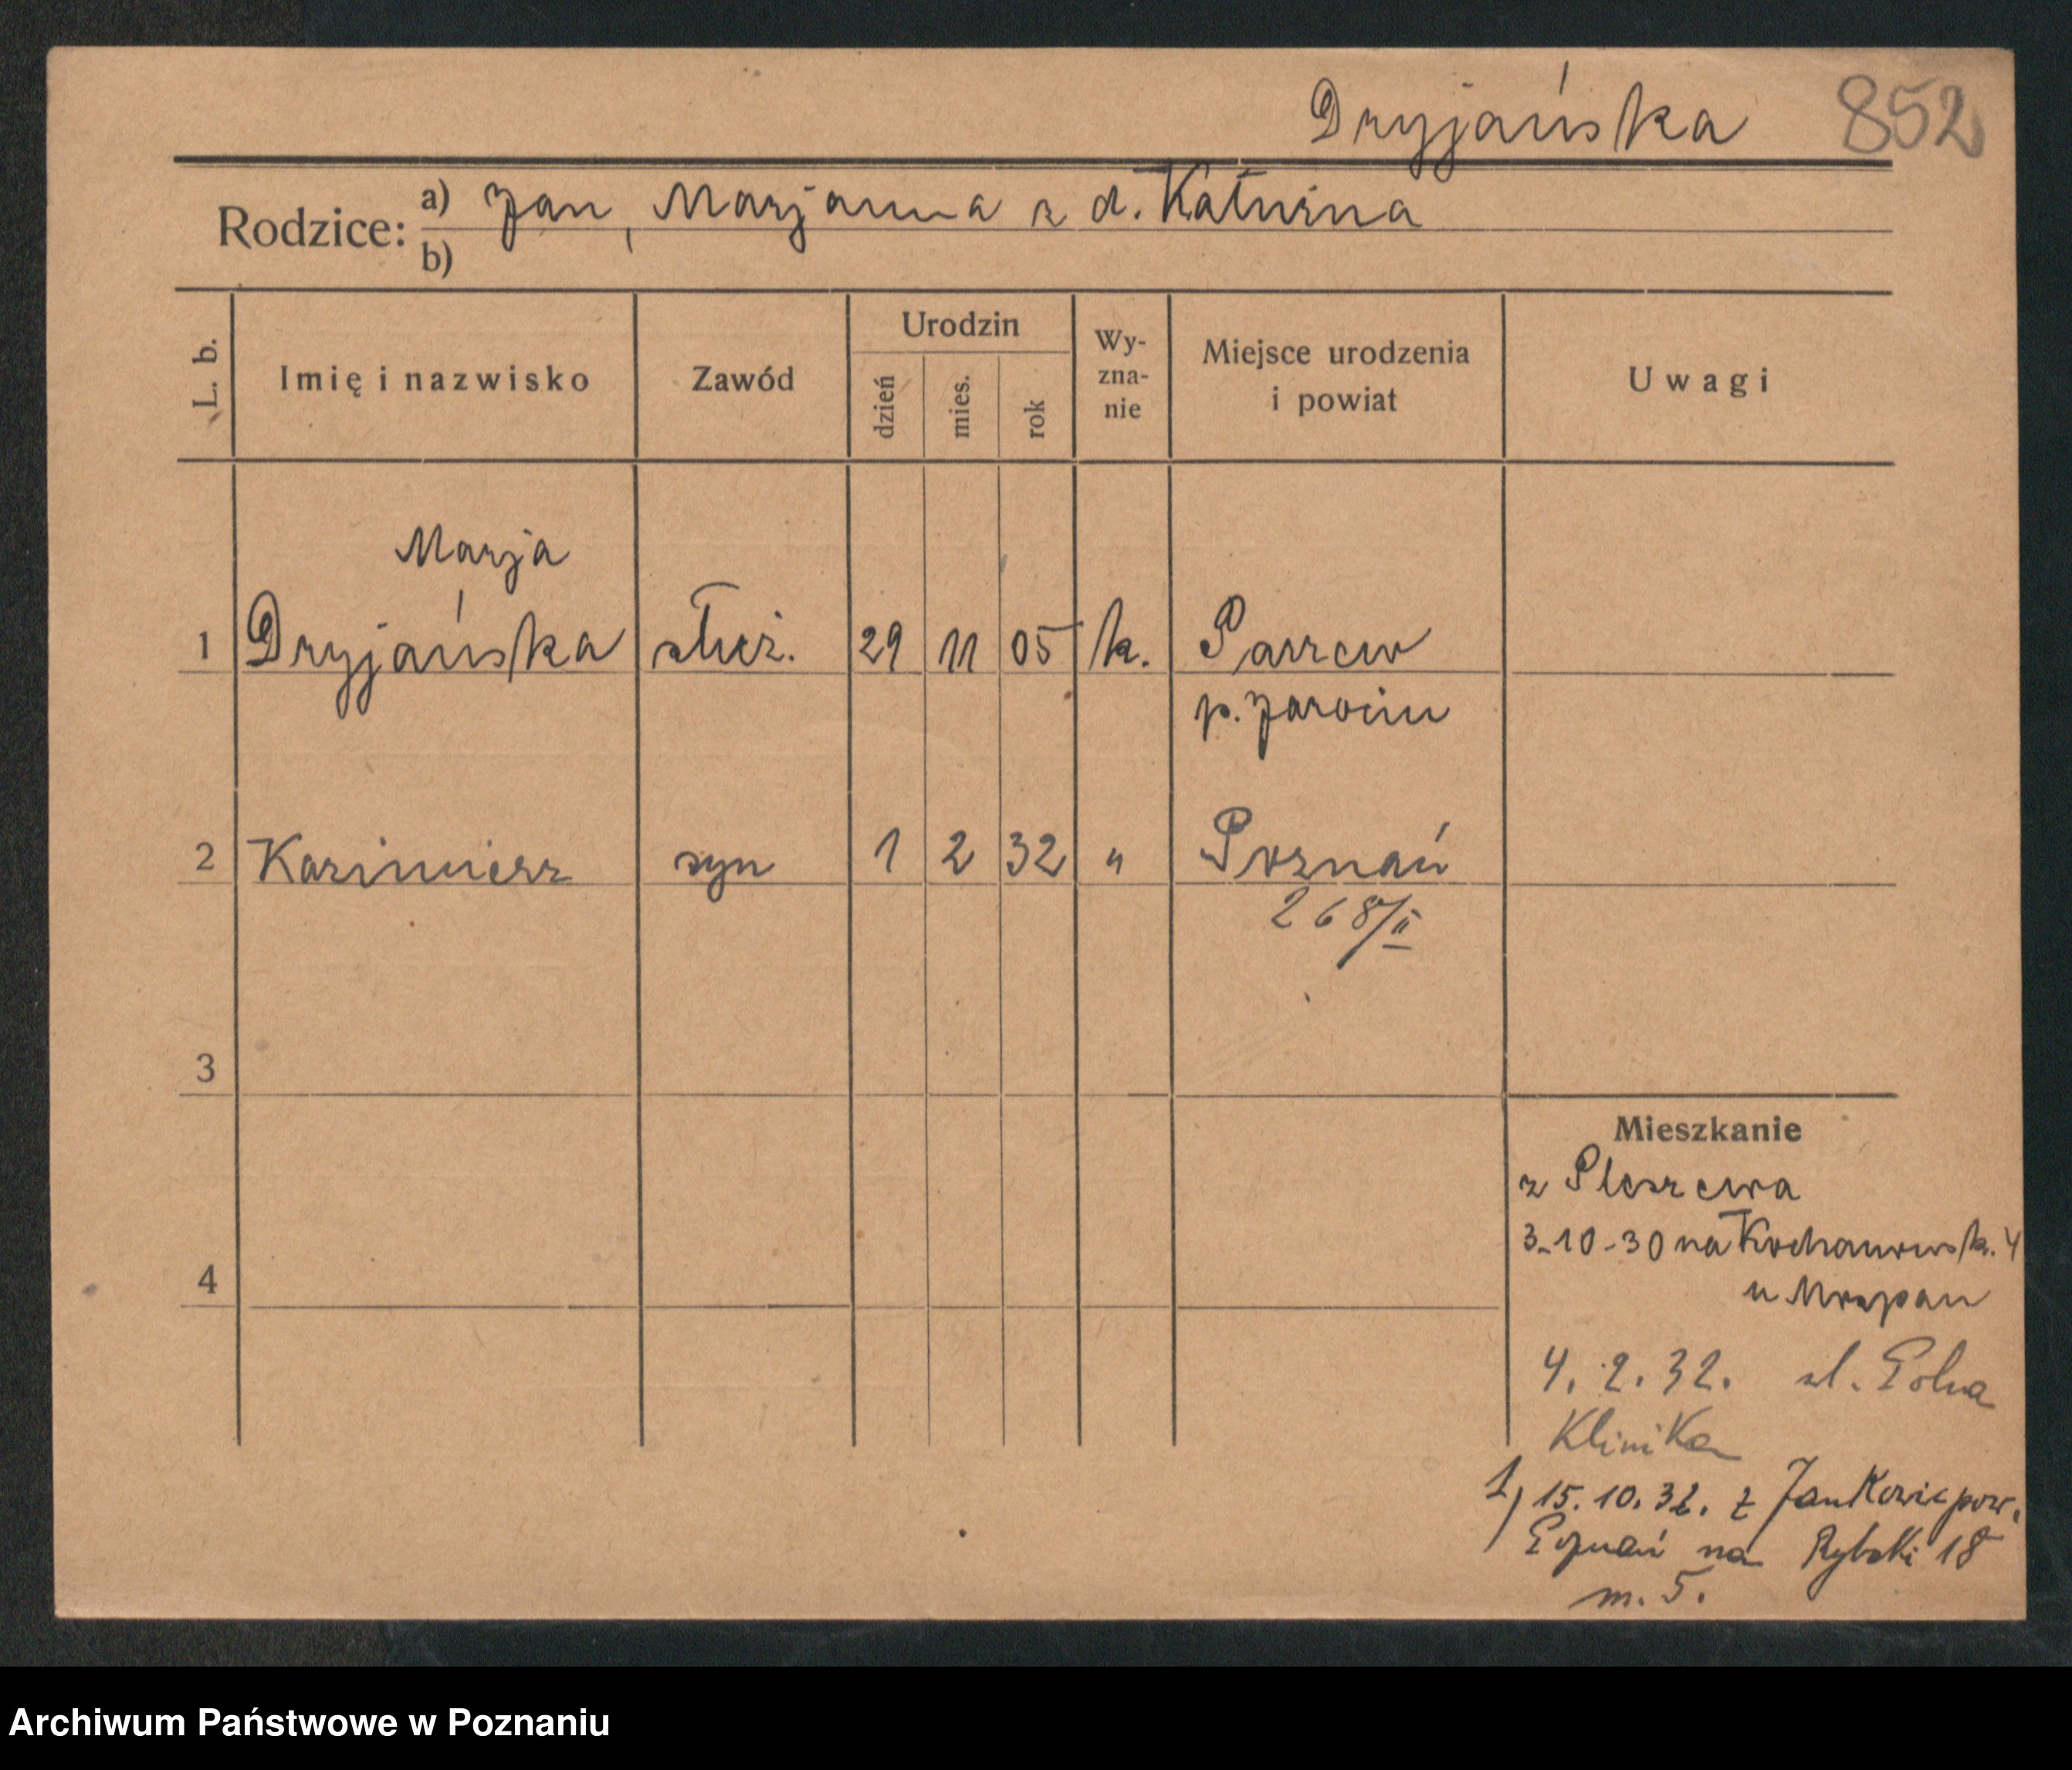 Dryjańska 852
Rodzice: a) Jan, Marjanna z d. Kałuzna
b)
L. b. Imię i nazwisko Zawód Urodzin dzień mies. rok Wy-zna-nie Miejsce urodzenia i powiat Uwagi
Marja
1 Dryjańska służ. 29 11 05 k. Parzew
p. Jarocin
2 Kazimierz syn 1 2 32 " Poznań
268/II
3
Mieszkanie
z Pleszewa
3-10-30 na Kochanowsk. 4
4
u Mrozpan
4.2.32. ul. Polna
Klinika
1) 15.10.32. z Jankowic pow.
Poznań na Rybaki 18
m. 5.
Archiwum Państwowe w Poznaniu